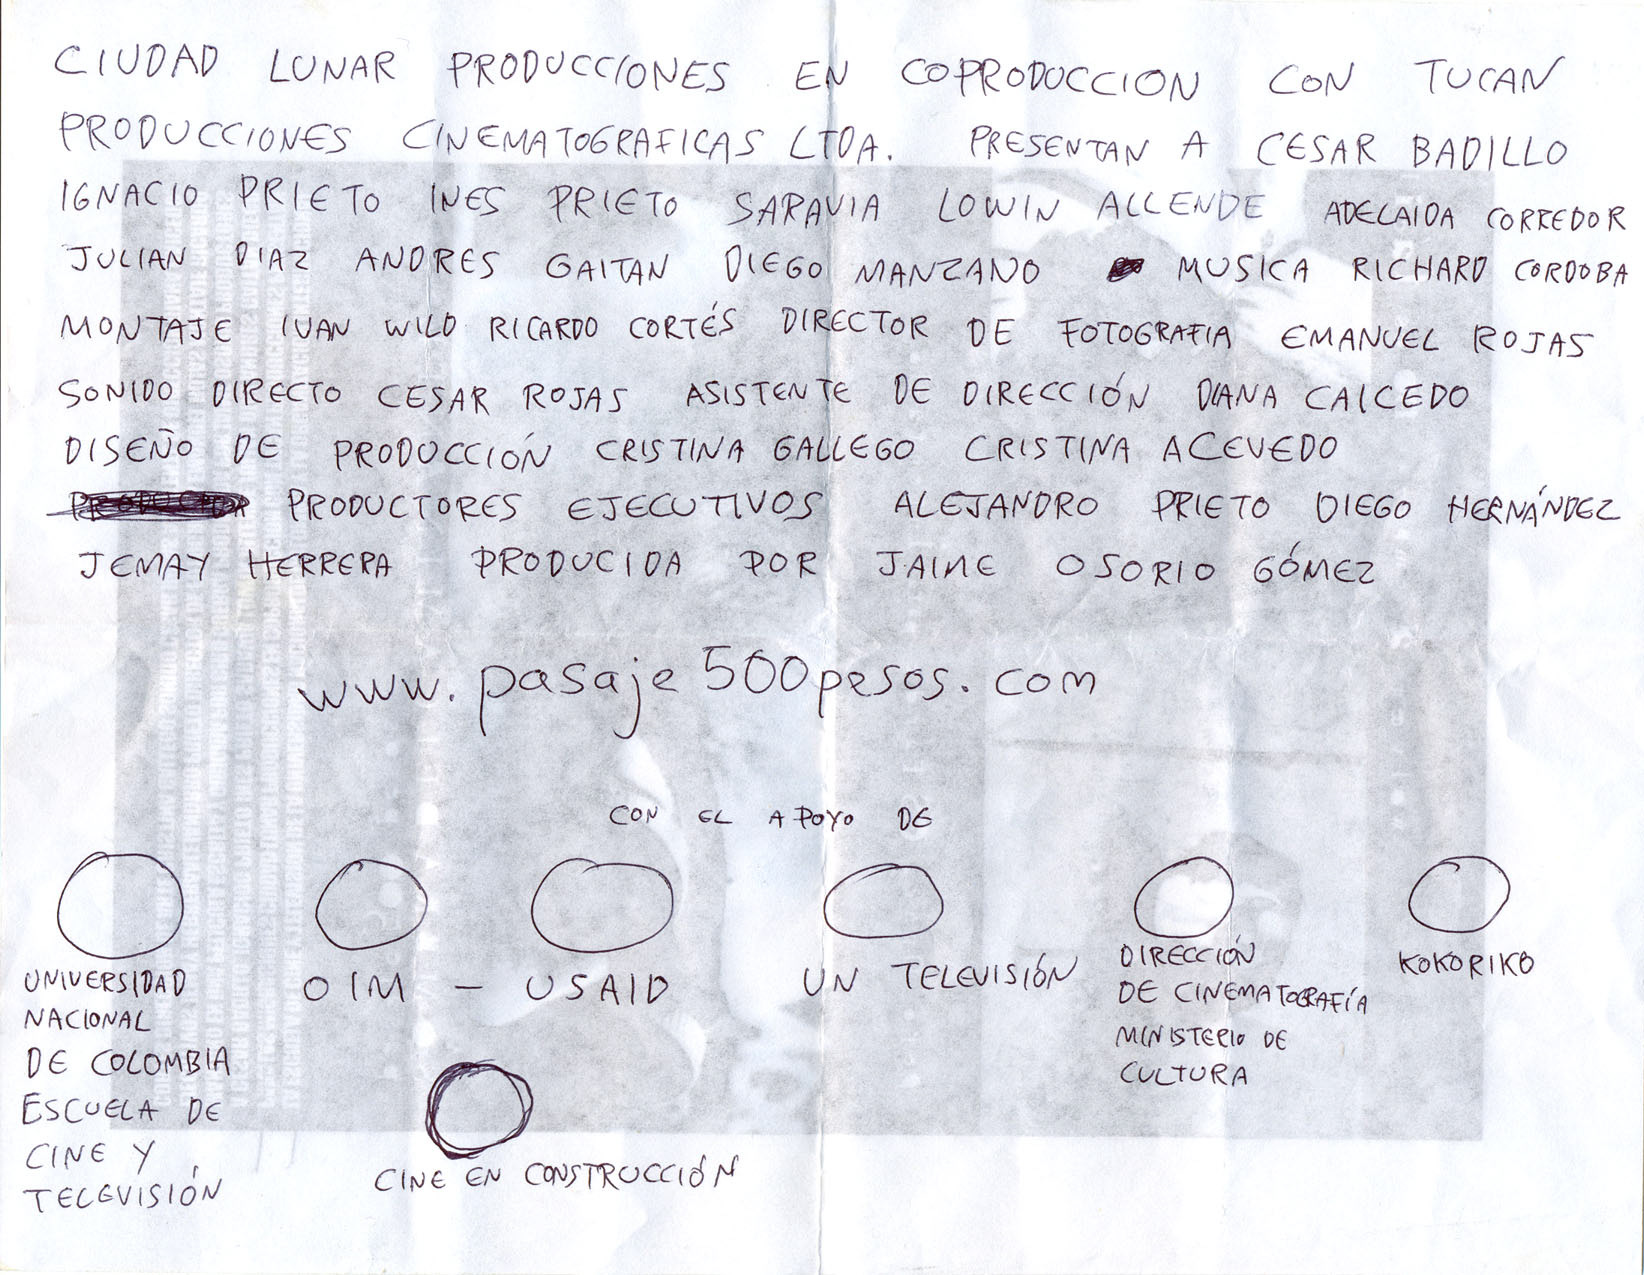 CIUDAD LUNAR PRODUCCIONES EN COPRODUCCION CON TUCAN
PRODUCCIONES CINEMATOGRAFICAS LTDA. PRESENTAN A CESAR BADILLO
IGNACIO PRIETO INES PRIETO SARAVIA LOWIN ALLENDE ADELAIDA CORREDOR
JULIAN DIAZ ANDRES GAITAN DIEGO MANZANO MUSICA RICHARD CORDOBA
MONTAJE IVAN WILD RICARDO CORTÉS DIRECTOR DE FOTOGRAFIA EMANUEL ROJAS
SONIDO DIRECTO CESAR ROJAS ASISTENTE DE DIRECCIÓN DIANA CAICEDO
DISEÑO DE PRODUCCIÓN CRISTINA GALLEGO CRISTINA ACEVEDO
PRODUCTORES EJECUTIVOS ALEJANDRO PRIETO DIEGO HERNÁNDEZ
JEMAY HERRERA PRODUCIDA POR JAIME OSORIO GÓMEZ
www.pasaje500pesos.com
CON EL APOYO DE
UNIVERSIDAD
NACIONAL
DE COLOMBIA
ESCUELA DE
CINE Y
TELEVISIÓN
OIM - USAID
UN TELEVISIÓN
DIRECCIÓN
DE CINEMATOGRAFÍA
MINISTERIO DE
CULTURA
KOKORIKO
CINE EN CONSTRUCCIÓN